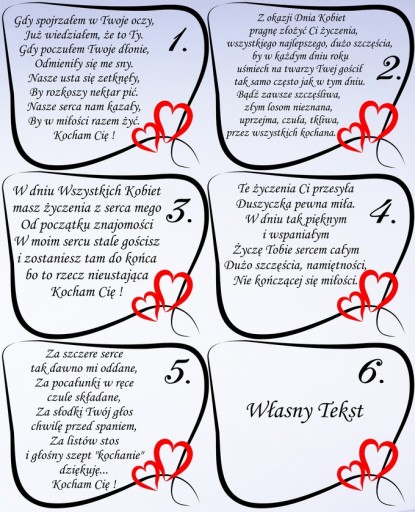 Gdy spojrzałem w Twoje oczy,
Już wiedziałem, że to Ty.
Gdy poczułem Twoje dłonie,
Odmieniły się me sny.
Nasze usta się zetknęły,
By rozkoszy nektar pić.
Nasze serca nam kazały,
By w miłości razem żyć.
Kocham Cię !
1.
Z okazji Dnia Kobiet
pragnę złożyć Ci życzenia,
wszystkiego najlepszego, dużo szczęścia,
by w każdym dniu roku
uśmiech na twarzy Twej gościł
tak samo często jak w tym dniu.
Bądź zawsze szczęśliwa,
złym losom nieznana,
uprzejma, czuła, tkliwa,
przez wszystkich kochana.
2.
W dniu Wszystkich Kobiet
masz życzenia z serca mego
Od początku znajomości
W moim sercu stale gościsz
i zostaniesz tam do końca
bo to rzecz nieustająca
Kocham Cię !
3.
Te życzenia Ci przesyła
Duszyczka pewna miła.
W dniu tak pięknym
i wspaniałym
Życzę Tobie sercem całym
Dużo szczęścia, namiętności,
Nie kończącej się miłości.
4.
Za szczere serce
tak dawno mi oddane,
Za pocałunki w ręce
czule składane,
Za słodki Twój głos
chwilę przed spaniem,
Za listów stos
i głośny szept "kochanie"
dziękuję...
Kocham Cię !
5.
6.
Własny Tekst